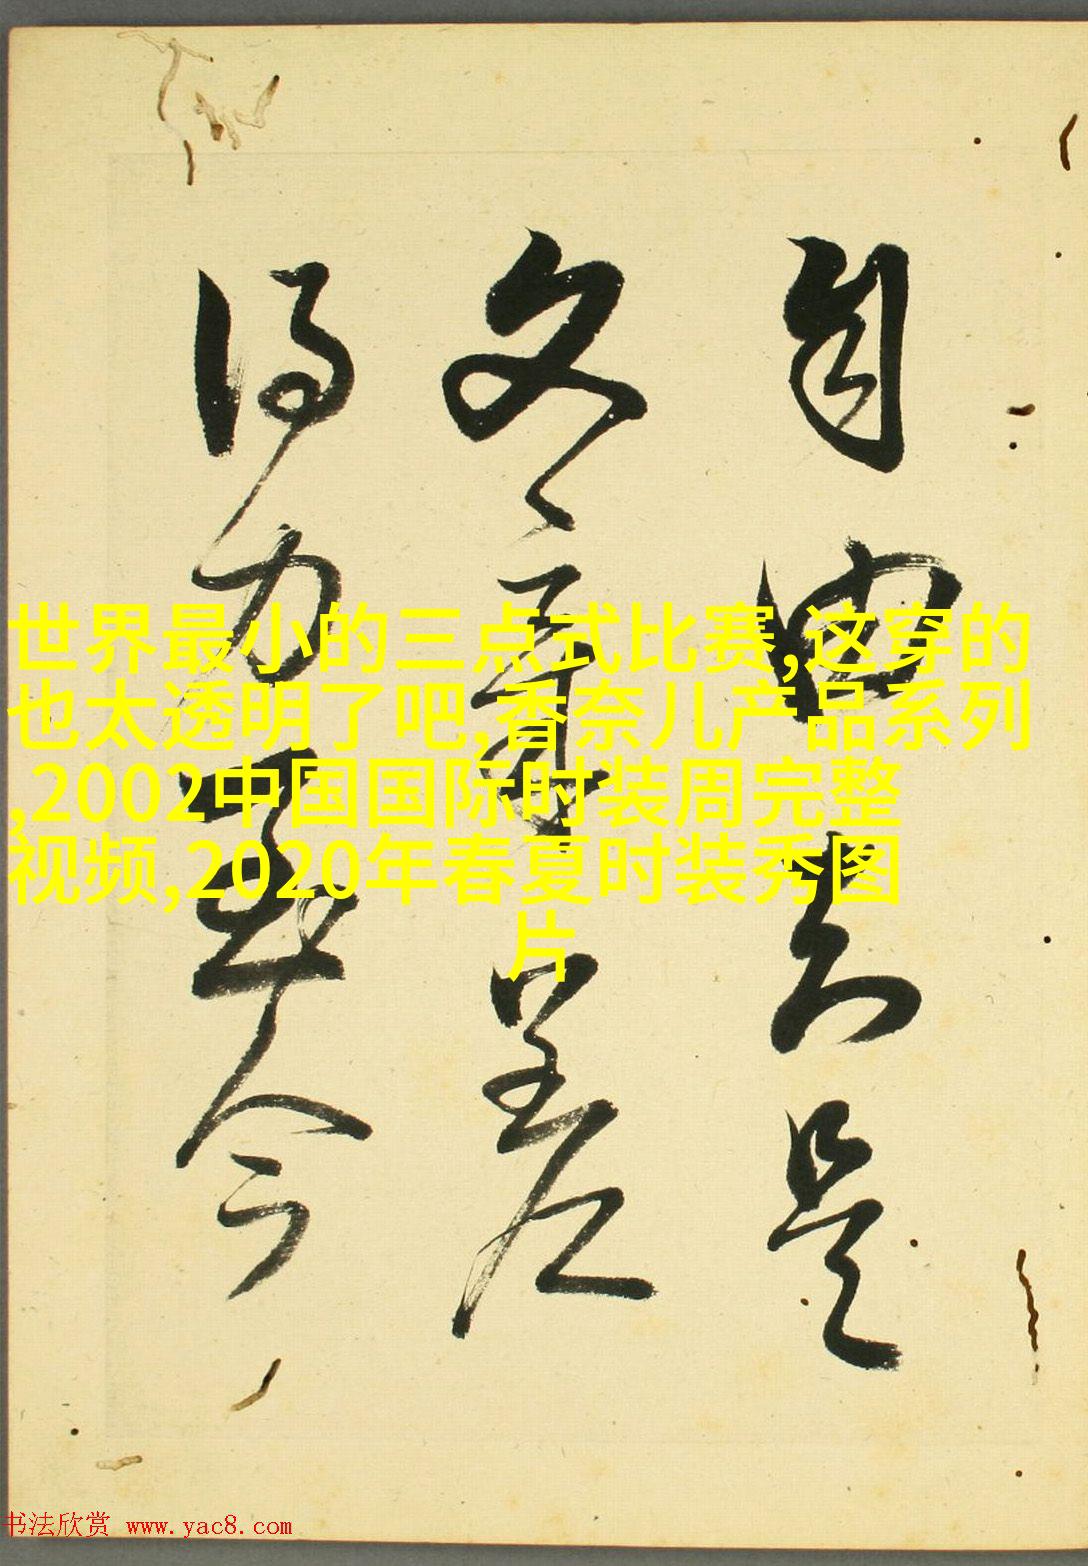 自由是
得力
世界最小的三点式比赛,这穿的
也太透明了吧,香奈儿产品系列
,2002中国国际时装周完整
视频,2020年春夏时装秀图
片
书法欣赏 www.yac8.com